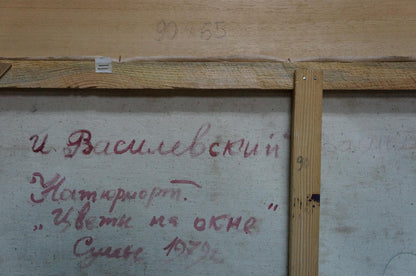 90 65
И Василевский
Натюрморт.
„Цветы на окне"
Сумы 1979г